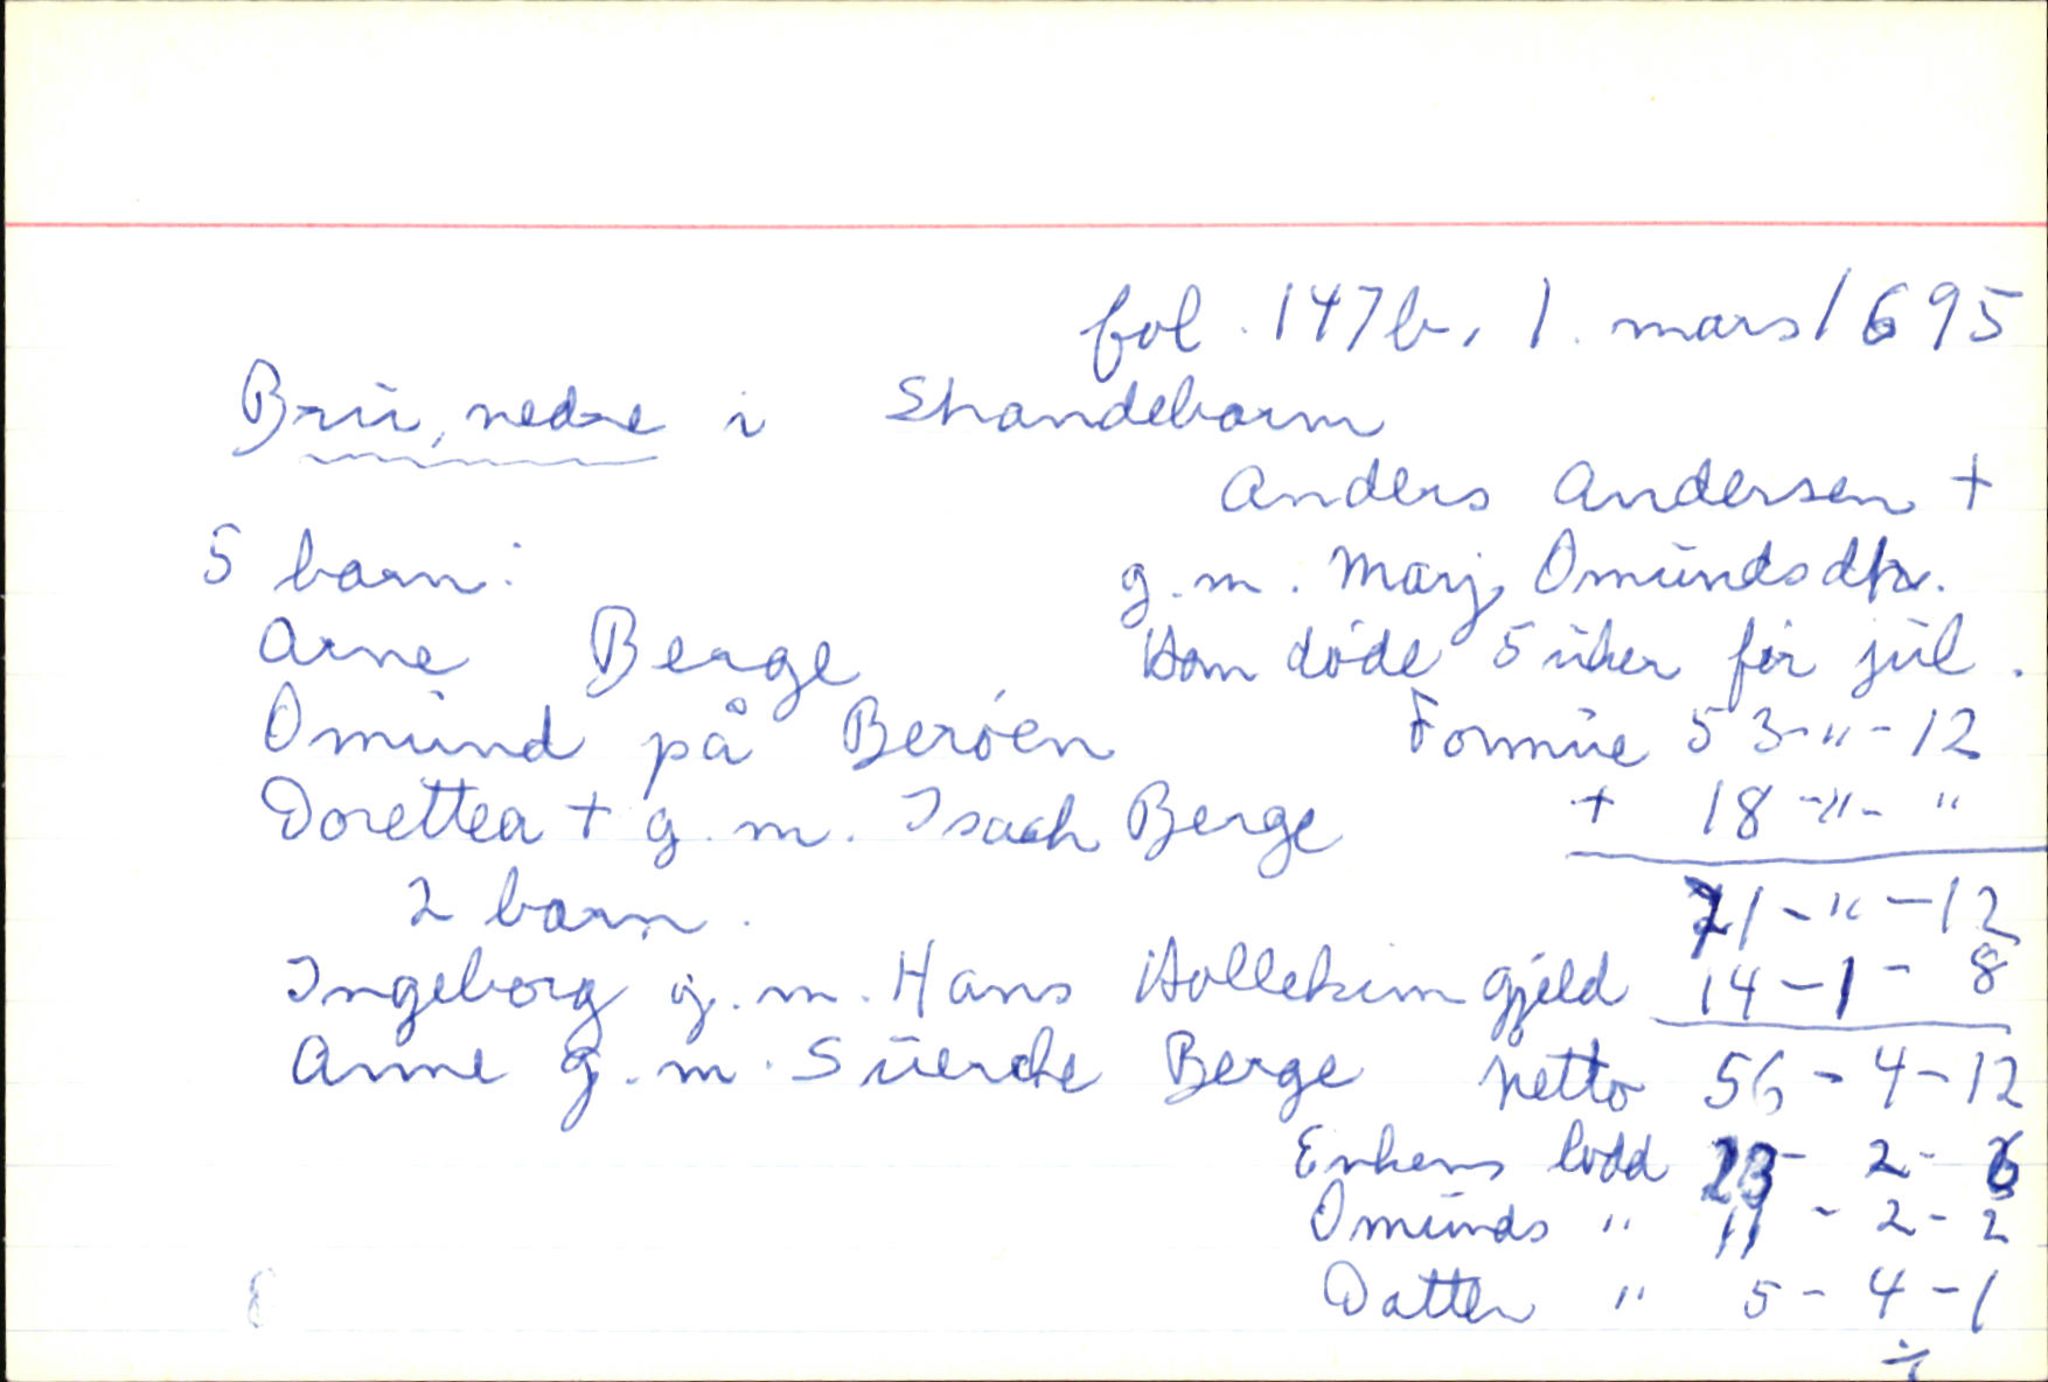 fol. 147b, 1. mars 1695
Brū, nedre i Strandebarm
Anders Andersen +
5 barn: g.m. Marj. Omūndsdtr.
Arne Berge Han døde 5 ūker før jūl.
Omūnd på Berøen Formūe 53-"-12
Dorettea + g.m. Isach Berge + 18-"-"
2 barn. 71-"-12
Ingeborg g.m. Hans Hollekim gjeld 14-1-8
Anne g.m. Sūerche Berge Netto 56-4-12
Enkens lodd 23-2-6
Omūnds " 11-2-2
Datter " 5-4-1
÷